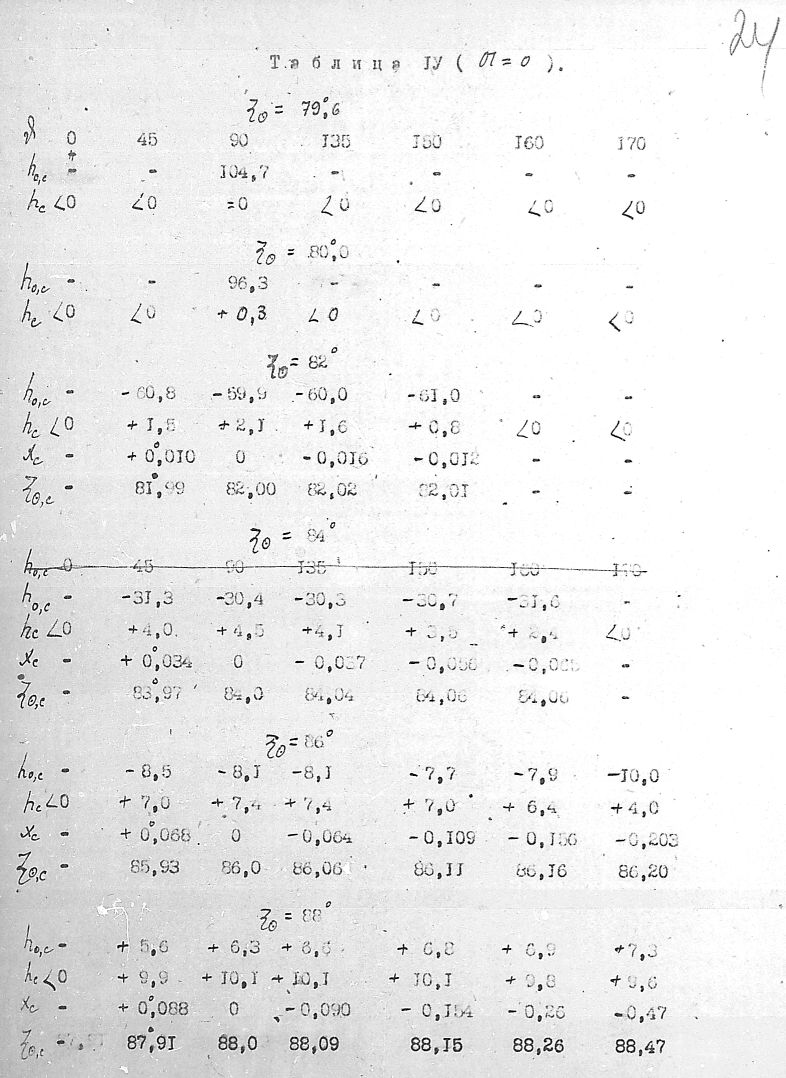 24
Таблица IУ ( σι = 0 ).
ζ⊙ = 79°,6
ϑ 0 45 90 I35 I50 I60 I70
h₀,c - - I04,7 - - - -
hc <0 <0 =0 <0 <0 <0 <0
ζ⊙ = 80°,0
h₀,c - - 96,3 - - - -
hc <0 <0 + 0,3 <0 <0 <0 <0
ζ⊙ = 82°
h₀,c - -60,8 -59,9 -60,0 -6I,0 - -
hc <0 +I,5 +2,I +I,6 +0,8 <0 <0
xc - + 0°,0I0 0 -0,0I6 -0,0I2 - -
ζ⊙,c - 8I°,99 82,00 82,02 82,0I - -
ζ⊙ = 84°
h₀,c 0 45 90 I35 I50 I60 I70
h₀,c - -3I,3 -30,4 -30,3 -30,7 -3I,6 -
hc <0 +4,0 +4,5 +4,I +3,5 +2,4 <0
xc - + 0°,034 0 -0,037 -0,056 -
ζ⊙,c - 83°,97 84,0 84,04 84,06 84,06 -
ζ⊙ = 86°
h₀,c - -8,5 -8,I -8,I -7,7 -7,9 -I0,0
hc <0 +7,0 +7,4 +7,4 +7,0 +6,4 +4,0
xc - + 0°,068 0 -0,064 -0,I09 -0,I56 -0,203
ζ⊙,c - 85,93 86,0 86,06 86,II 86,I6 86,20
ζ⊙ = 88°
h₀,c - +5,6 +6,3 +6,6 +6,8 +6,9 +7,3
hc <0 +9,9 +I0,I +I0,I +I0,I +9,8 +9,6
xc - + 0°,088 0 -0,090 -0,I54 -0,26 -0,47
ζ⊙,c - 87°,9I 88,0 88,09 88,I5 88,26 88,47